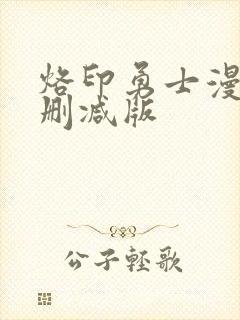 烙印勇士漫
删减版
公子轻歌